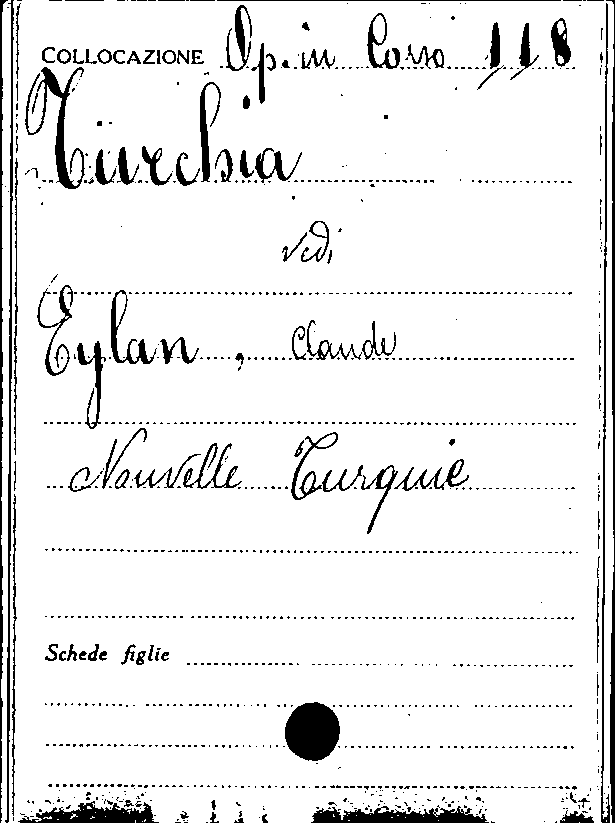 COLLOCAZIONE Op. in Corso 118
Turchia
vedi
Eylan, Claude
Nouvelle Turquie
Schede figlie